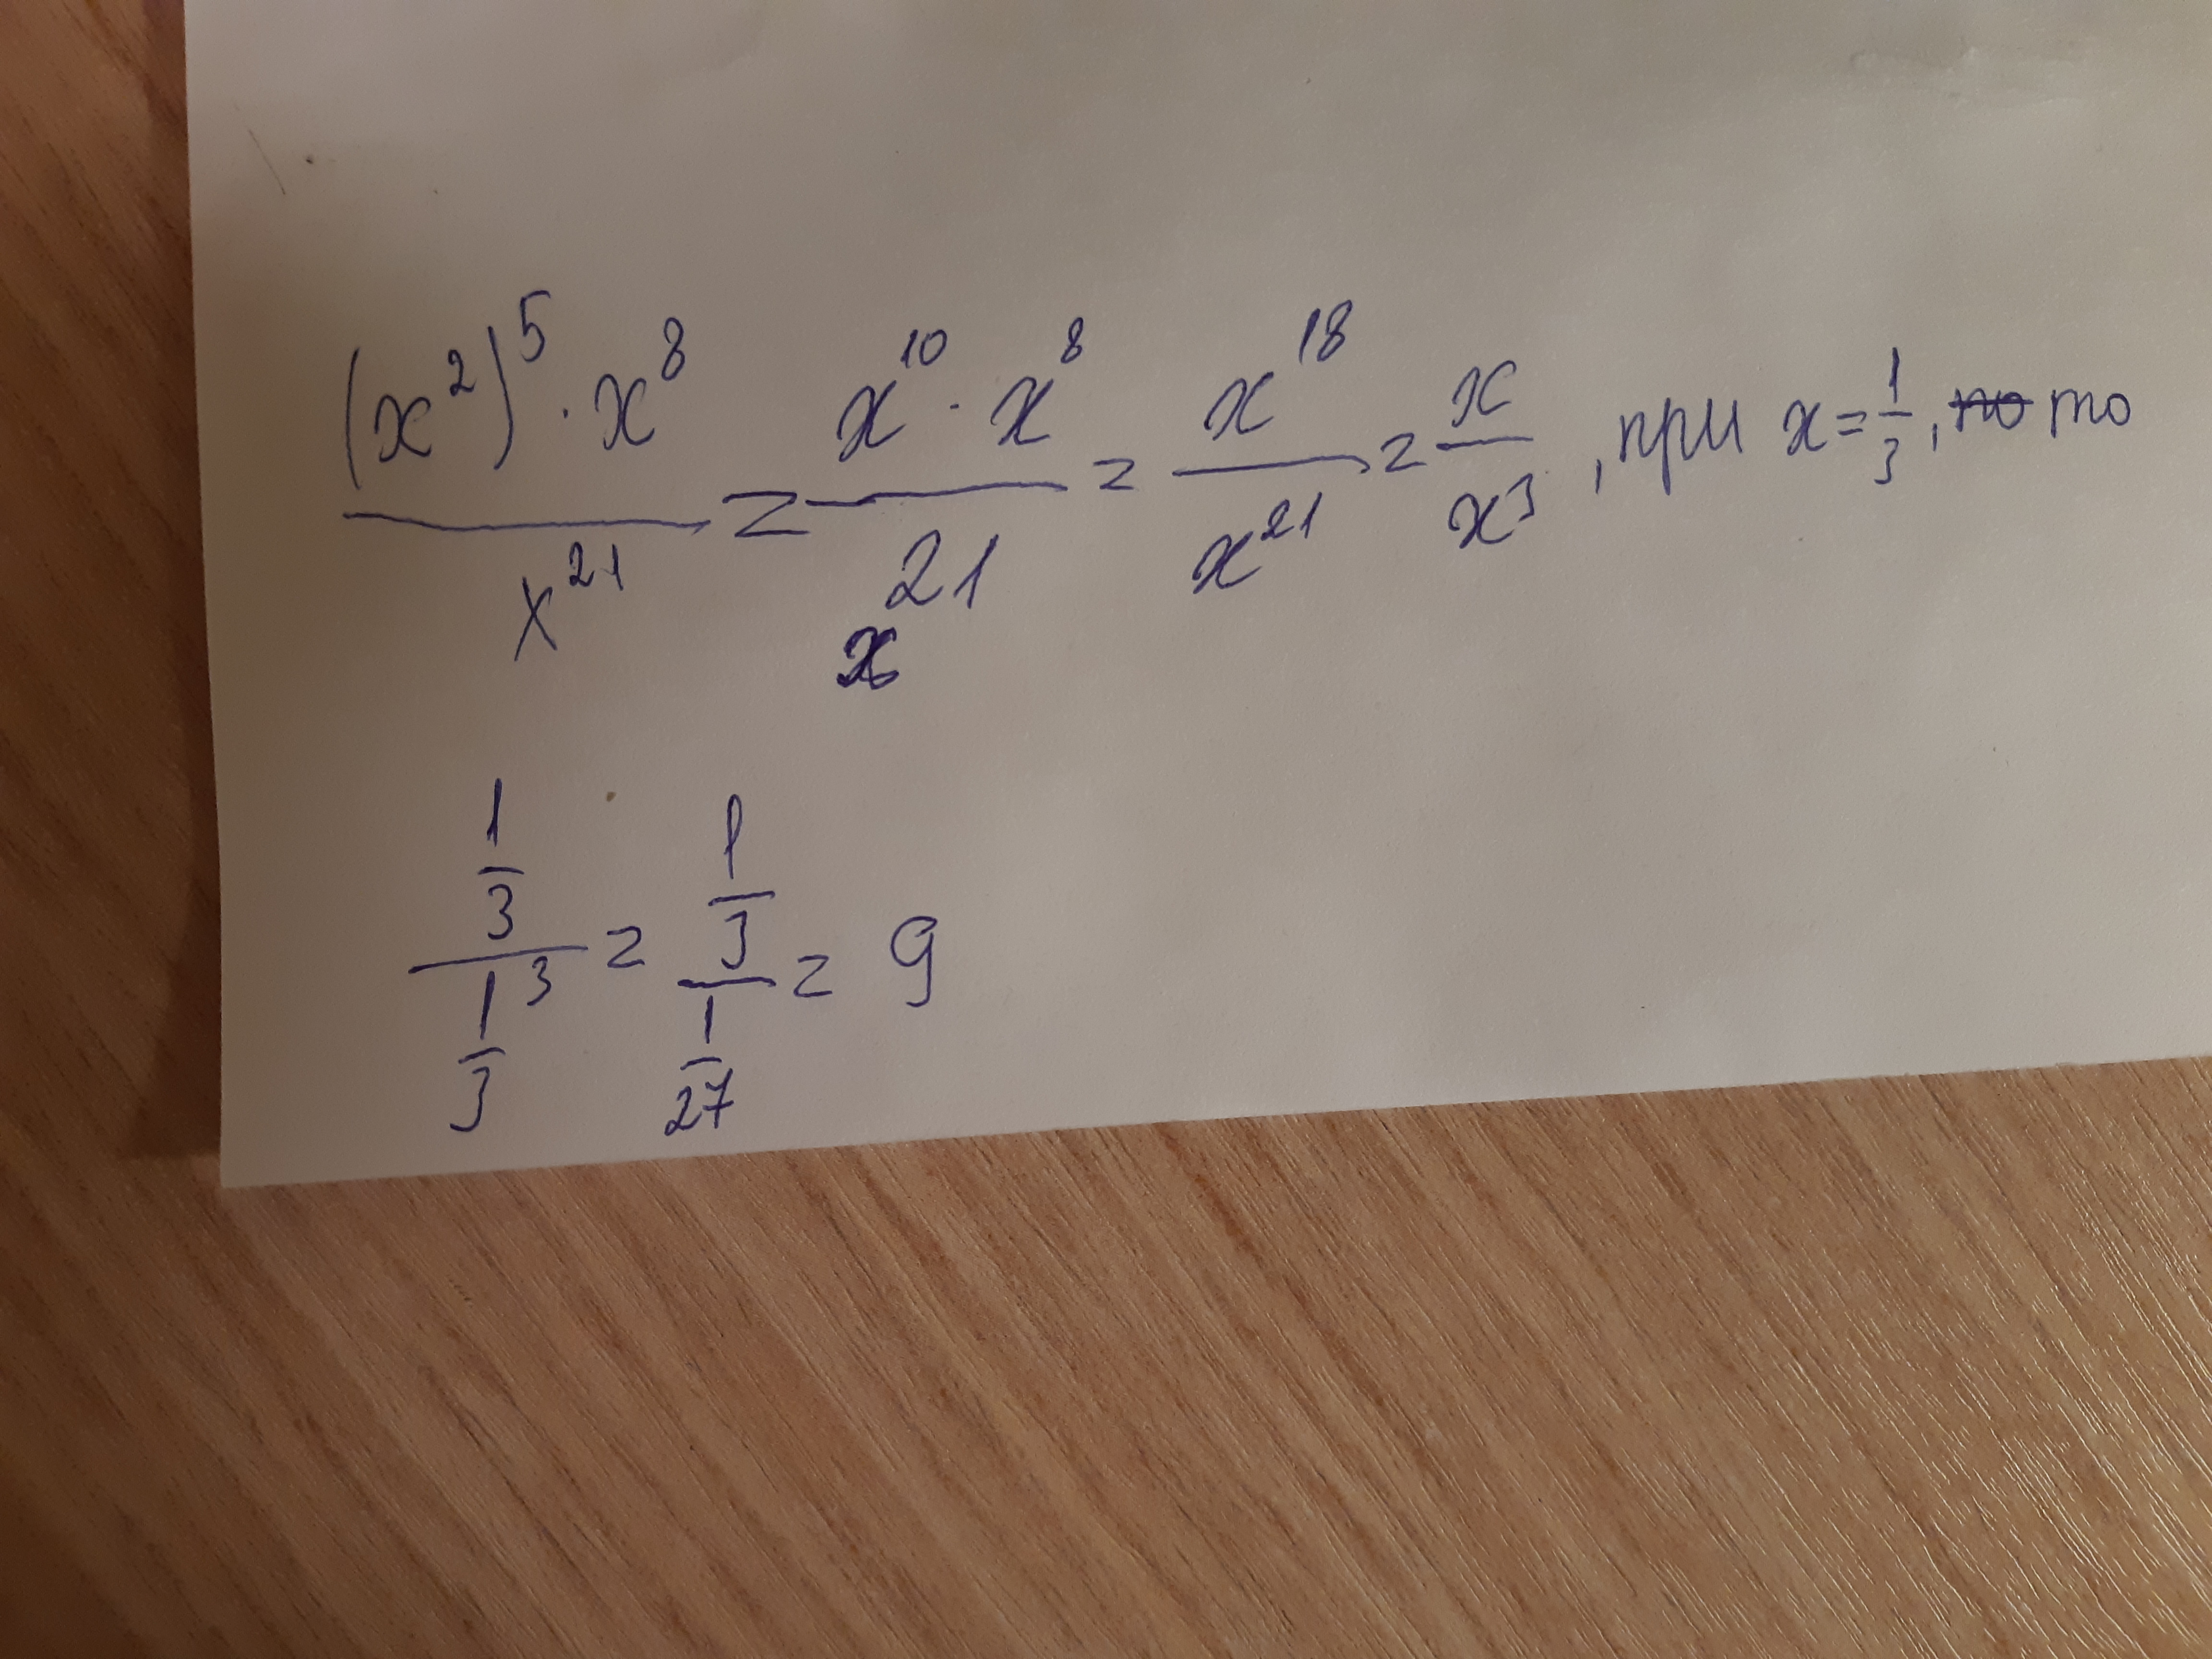 (x²)⁵ · x⁸ / x²¹ = x¹⁰ · x⁸ / x²¹ = x¹⁸ / x²¹ = x / x³ , при x = 1/3, то то
1/3 / 1/3³ = 1/3 / 1/27 = 9